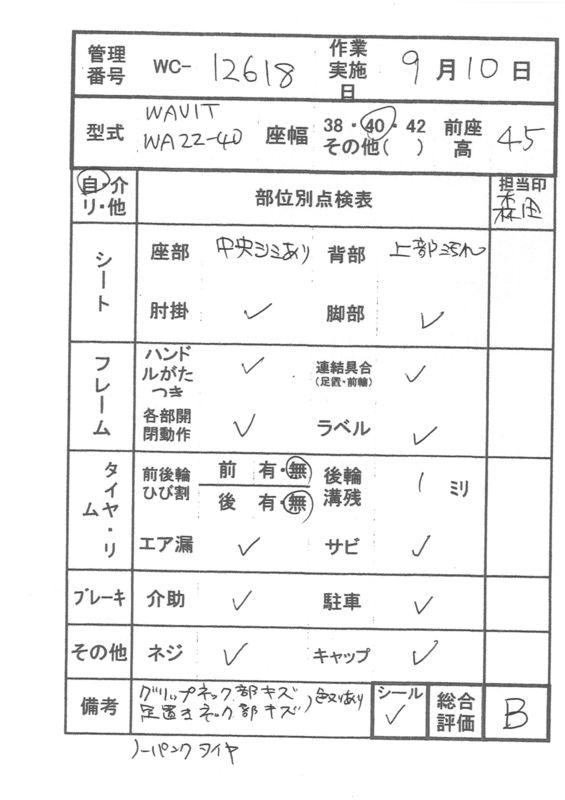 管理番号 WC- 12618 作業実施日 9月10日
型式 WAVIT WA22-40 座幅 38・40・42 その他( ) 前座高 45
自・介 リ・他 部位別点検表 担当印 森田
シート 座部 中央シミあり 背部 上部汚れ
肘掛 ✓ 脚部 ✓
フレーム ハンドルがたつき ✓ 連結具合(足置・前輪) ✓
各部開閉動作 ✓ ラベル ✓
タイヤ・リム 前後輪ひび割 前 有・無 後輪溝残 1 ミリ
後 有・無
エア漏 ✓ サビ ✓
ブレーキ 介助 ✓ 駐車 ✓
その他 ネジ ✓ キャップ ✓
備考 グリップネック部キズ シール ✓ 総合評価 B
足置きネック部キズ
ノーパンクタイヤ